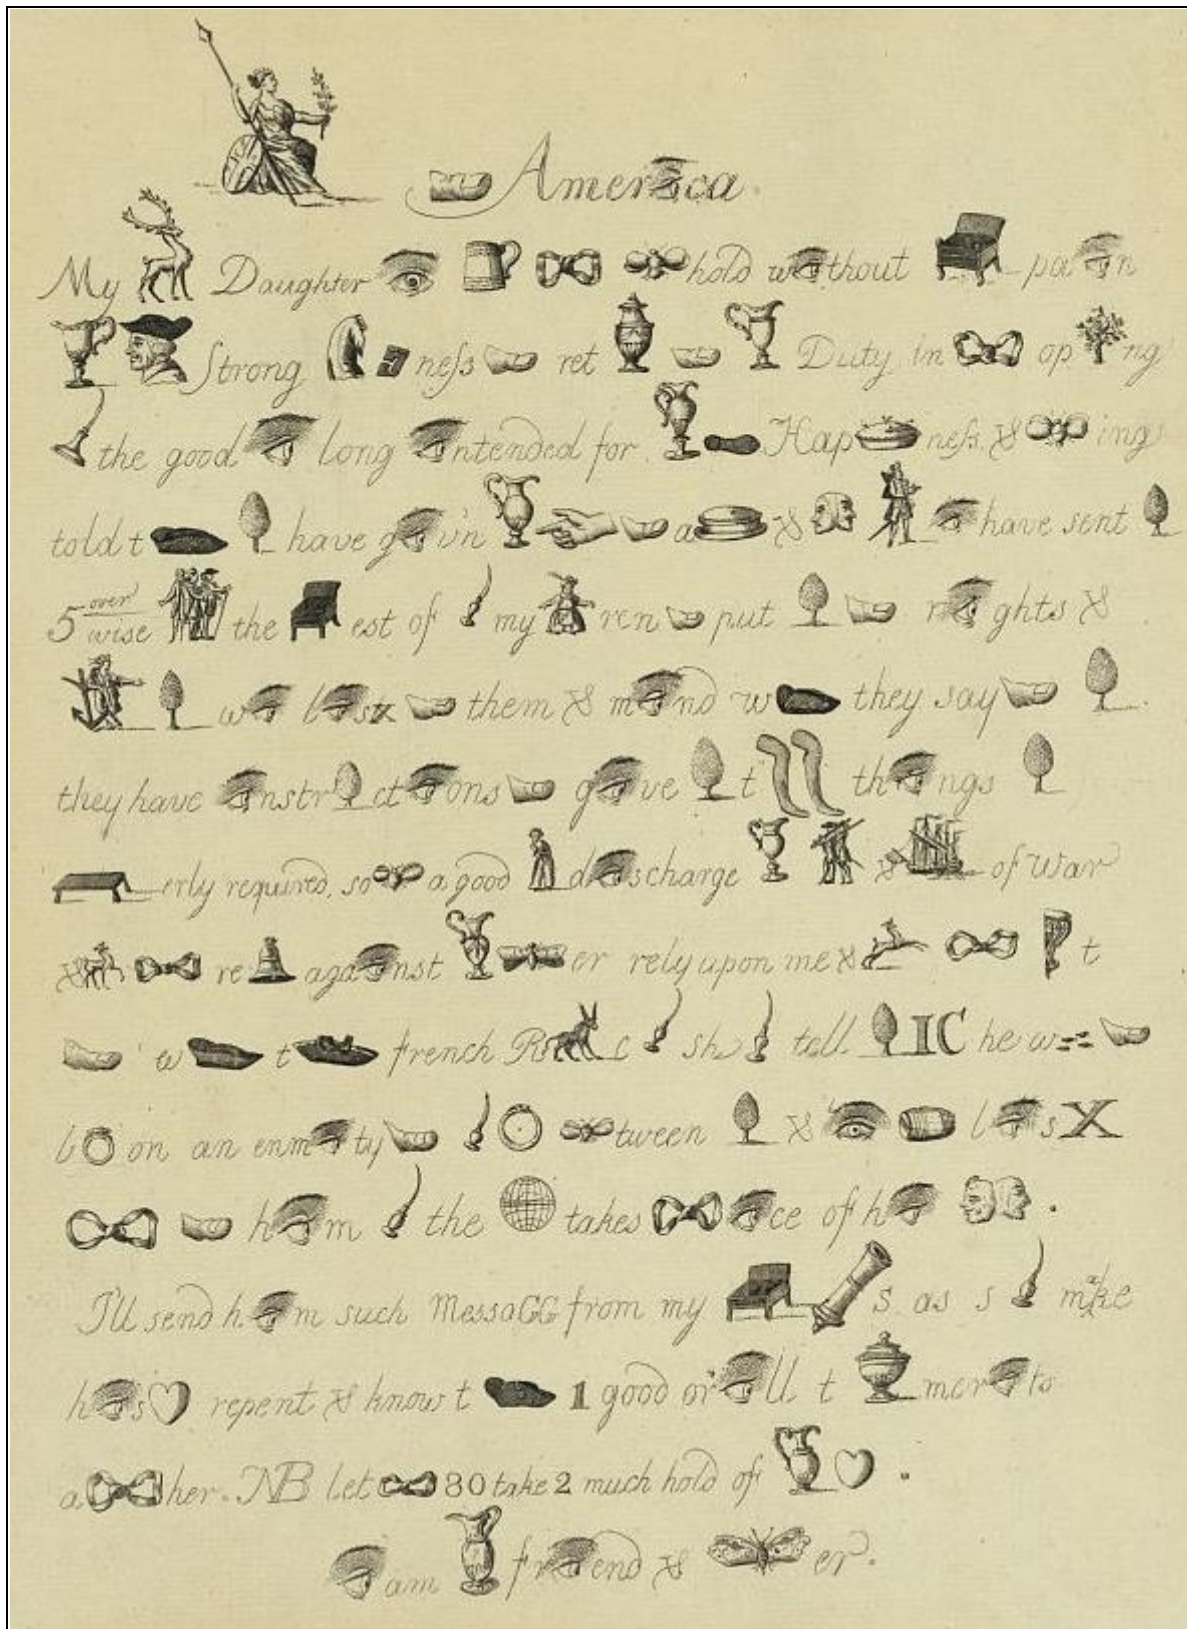 Amer ca.
My Daughter hold w thout pa n
Strong ness ret Duty in op ng
the good long ntended for Hap ness. & ings
told t have g v'n a & have sent
5 over/wise the est of my ren put r ghts &
w l st x them & m nd w they say
they have nstr ct ons g ve t th ngs
erly required, so a good d scharge & of War
& re aga nst er rely upon me & t
w t french R c sh tell IC he w
b on an enm ty tween & l s X
h m the takes ce of h .
I'll send h m such MessaGG from my s as s make
h s repent & know t 1 good or ll t mer to
a her. NB let 80 take 2 much hold of .
am fr end & er.